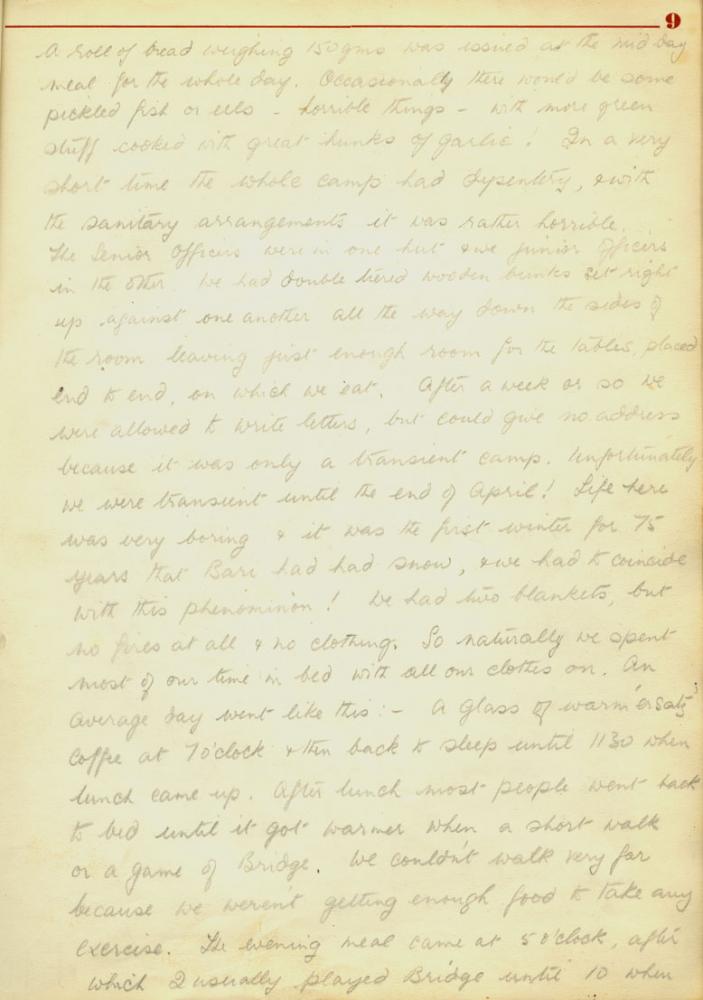 9
A roll of bread weighing 150gms was issued at the mid day
meal for the whole day. Occasionally there would be some
pickled fish or eels - horrible things - with more green
stuff cooked with great hunks of garlic! In a very
short time the whole camp had dysentery, & with
the sanitary arrangements it was rather horrible.
The Senior Officers were in one hut & we junior officers
in the other. We had double tiered wooden bunks set right
up against one another all the way down the sides of
the room leaving just enough room for the tables, placed
end to end, on which we eat. After a week or so we
were allowed to write letters, but could give no address
because it was only a transient camp. Unfortunately
we were transient until the end of April! Life here
was very boring & it was the first winter for 75
years that Bari had had snow, & we had to coincide
with this phenominon! We had two blankets, but
no fires at all & no clothing. So naturally we spent
most of our time in bed with all our clothes on. An
average day went like this:- A glass of warm 'ersatz'
coffee at 7 o'clock & then back to sleep until 1130 when
lunch came up. After lunch most people went back
to bed until it got warmer when a short walk
or a game of Bridge. We couldn't walk very far
because we weren't getting enough food to take any
exercise. The evening meal came at 5 o'clock, after
which I usually played Bridge until 10 when